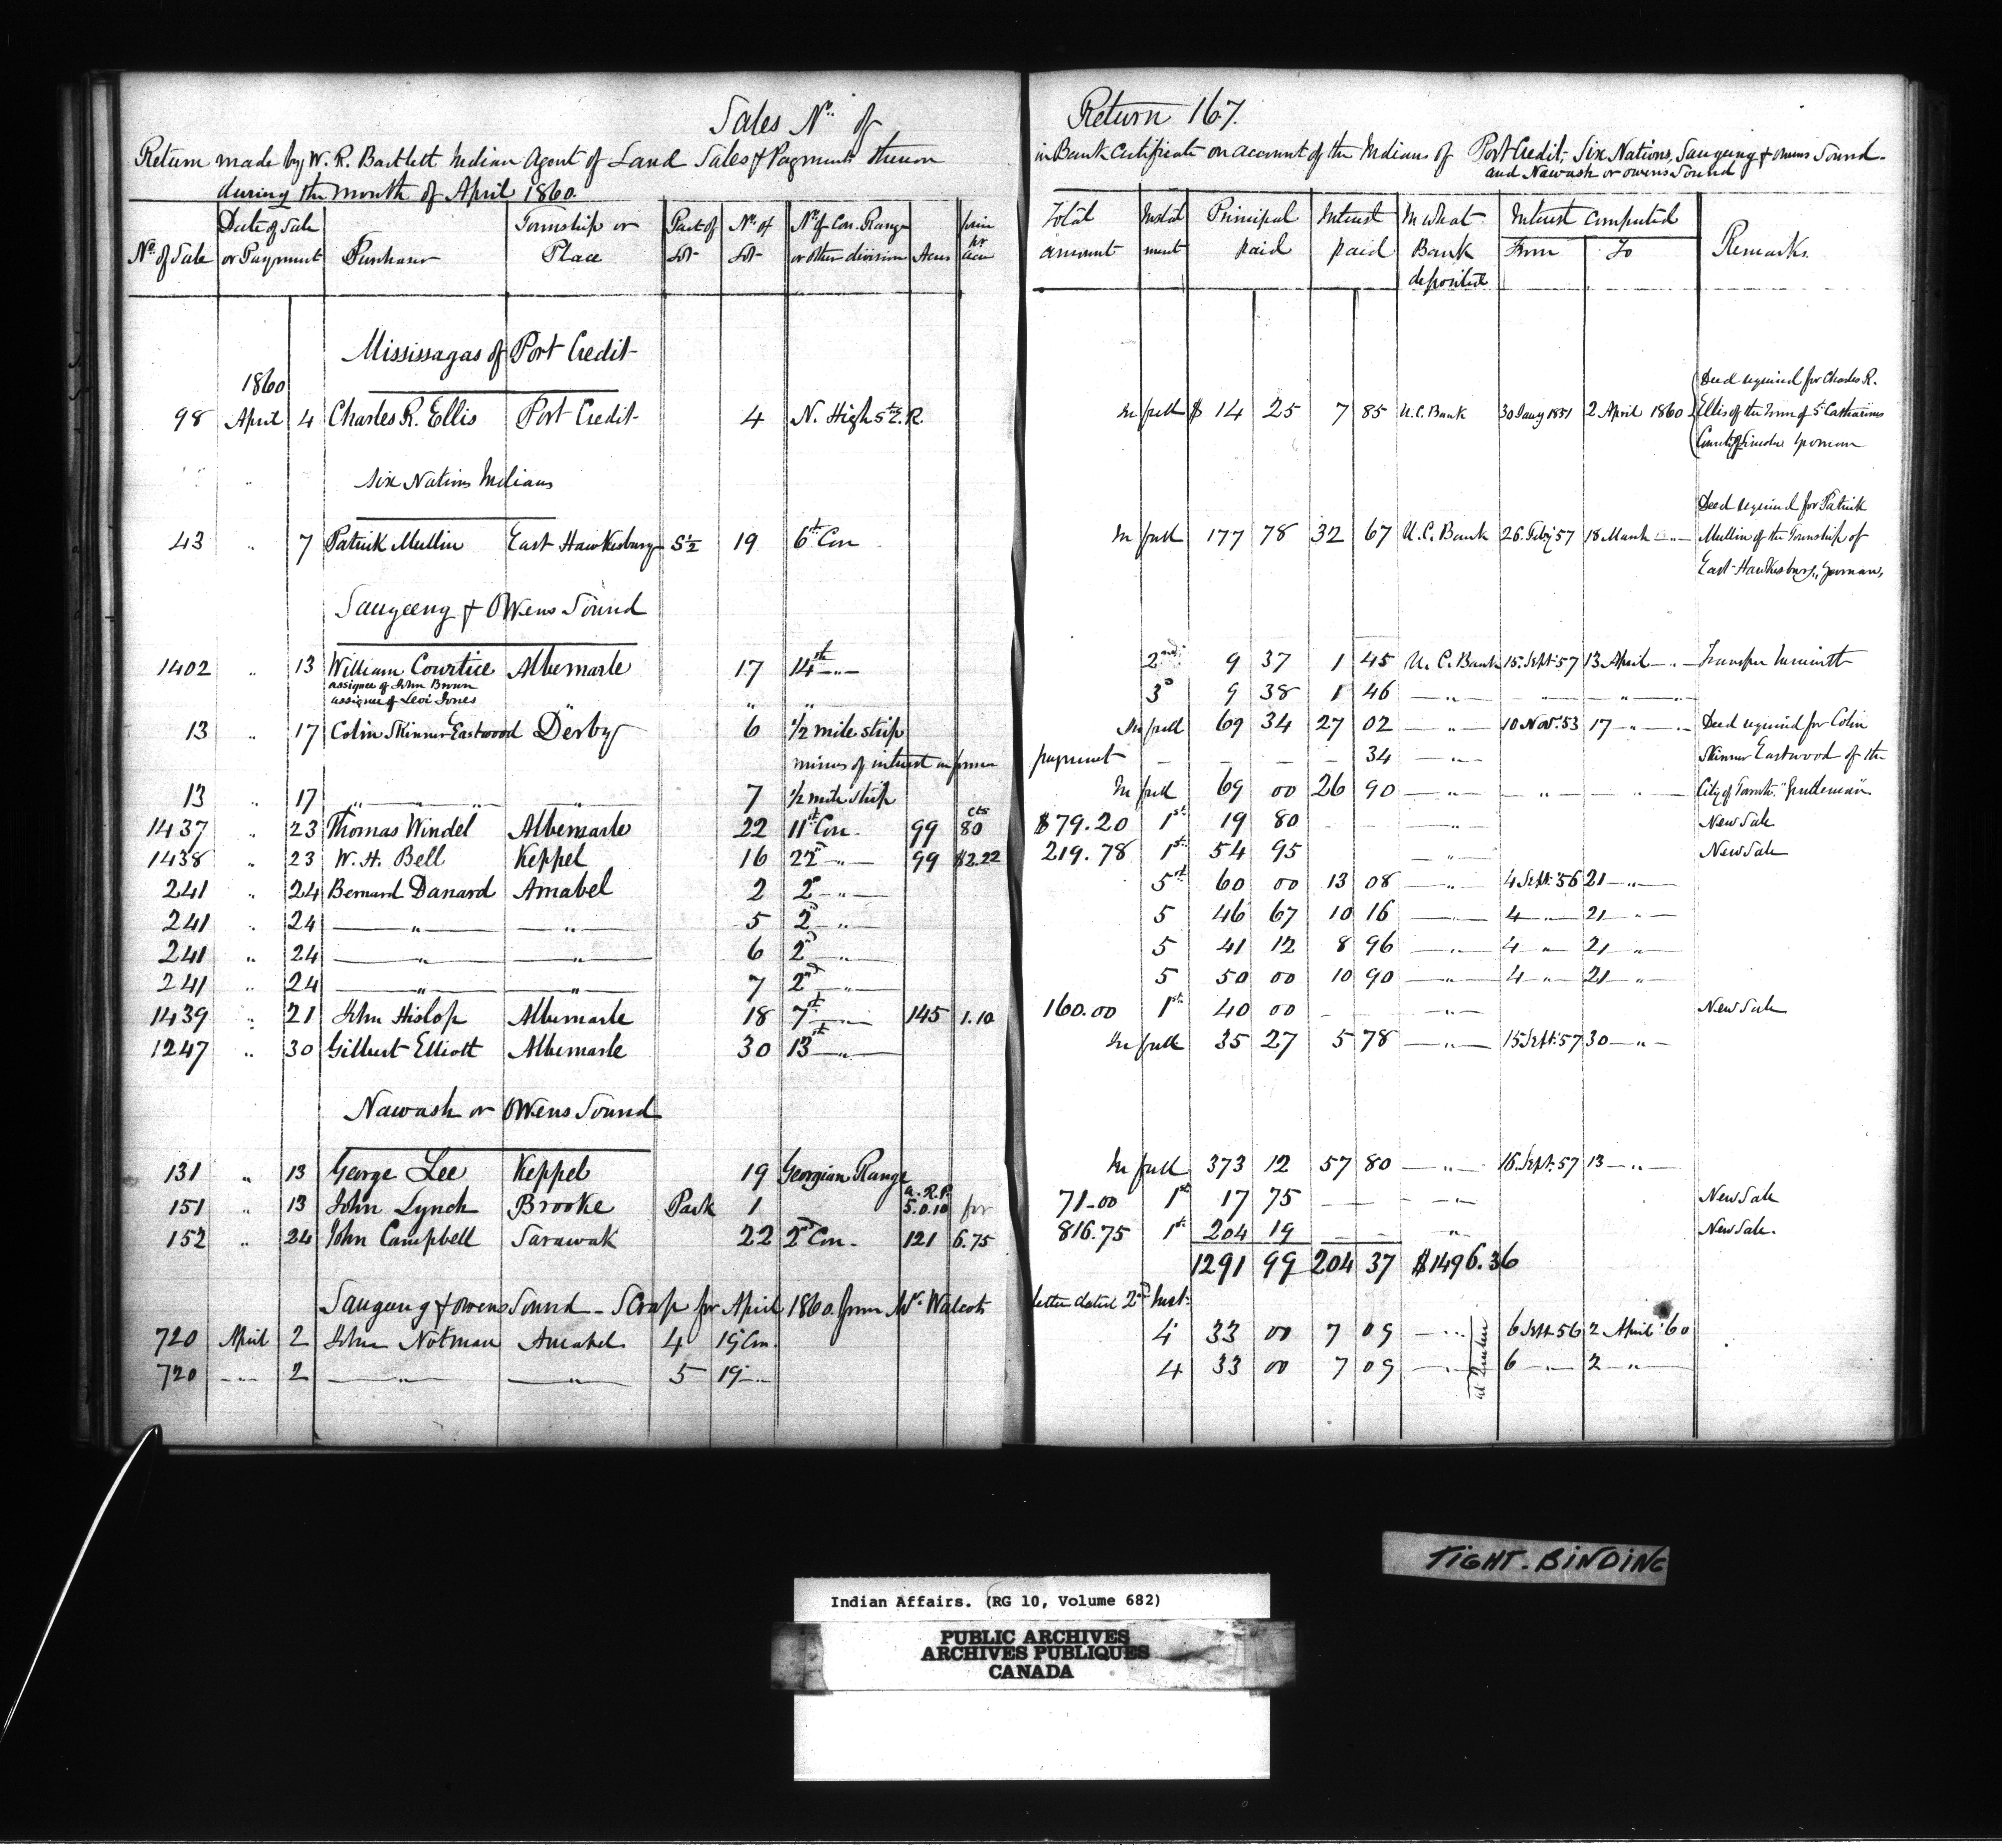 Sales No. of Return 167.
Return made by W. R. Bartlett Indian Agent of Land Sales & Payments thereon in Bank Certificate on account of the Indians of Port Credit, Six Nations, Saugeeng & Owens Sound
during the month of April 1860. and Nawash or Owens Sound
No. of Sale Date of Sale or Payment Purchaser Township or Place Part of Lot No. of Lot No. of Con. Range or other division Acres price pr acre Total amount Instalment Principal paid Interest paid In what Bank deposited Interest computed From To Remarks.
Mississagas of Port Credit
1860
98 April 4 Charles R. Ellis Port Credit 4 N. High St. E. R. In full $ 14 25 7 85 U.C. Bank 30 Jany 1851 2 April 1860 Deed required for Charles R.
Ellis of the Town of St. Catharines
County of Lincoln yeoman
Six Nations Indians
43 " 7 Patrick Mullin East Hawkesbury S 1/2 19 6th Con In full 177 78 32 67 U.C. Bank 26 Feby 57 18 March " Deed required for Patrick
Mullin of the Township of
East Hawkesbury, yeoman,
Saugeeng & Owens Sound
1402 " 13 William Courtice Albemarle 17 14th " 2nd 9 37 1 45 U.C. Bank 15 Sept 57 13 April " Transfer herewith
assignee of John Brown
assignee of Levi Jones " " 3d 9 38 1 46 " " "
13 " 17 Colin Skinner Eastwood Derby 6 1/2 mile strip In full 69 34 27 02 " 10 Nov. 53 17 " Deed required for Colin
minus of interest in former payment - - - - 34 " Skinner Eastwood of the
13 " 17 " " " " 7 1/2 mile strip In full 69 00 26 90 " " " City of Toronto "Gentleman"
1437 " 23 Thomas Windel Albemarle 22 11th Con. 99 80 cts $79.20 1st 19 80 " New Sale
1438 " 23 W. H. Bell Keppel 16 22d " 99 $2.22 219.78 1st 54 95 " New Sale
241 " 24 Bernard Danard Amabel 2 2d " 5th 60 00 13 08 " 4 Sept. 56 21 "
241 " 24 " " 5 2d " 5 46 67 10 16 " 4 " 21 "
241 " 24 " " 6 2d " 5 41 12 8 96 " 4 " 21 "
241 " 24 " " 7 2d " 5 50 00 10 90 " 4 " 21 "
1439 " 21 John Hislop Albemarle 18 7th " 145 1.10 160.00 1st 40 00 " New Sale
1247 " 30 Gilbert Elliott Albemarle 30 13th " In full 35 27 5 78 " 15 Sept. 57 30 "
Nawash or Owens Sound
131 " 13 George Lee Keppel 19 Georgian Range In full 373 12 57 80 " 16 Sept. 57 13 "
151 " 13 John Lynch Brooke Park 1 a. R. P. 5.0.10 for 71.00 1st 17 75 " New Sale
152 " 24 John Campbell Sarawak 22 2d Con. 121 6.75 816.75 1st 204 19 " New Sale.
1291 99 204 37 $1496.36
Saugeeng & Owens Sound - Scrap for April 1860 from Mr. Walcots letter dated 2nd Inst.
720 April 2 John Notman Amabel 4 19 Con. 4 33 00 7 09 " 6 Sept 56 2 April '60
720 " 2 " " 5 19 " 4 33 00 7 09 " 6 " 2 "
at Quebec
TIGHT. BINDING
Indian Affairs. (RG 10, Volume 682)
PUBLIC ARCHIVES
ARCHIVES PUBLIQUES
CANADA